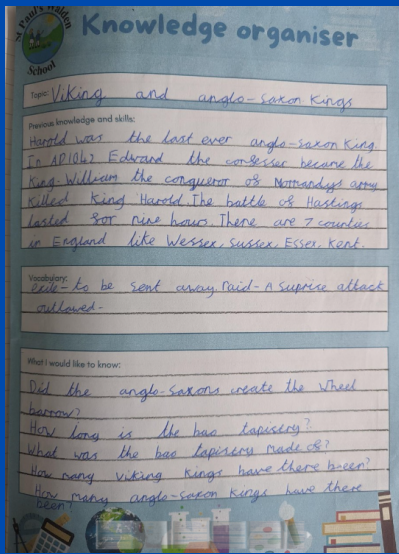 St Paul's Walden
School
Knowledge organiser
Topic: Viking and anglo-saxon Kings
Previous knowledge and skills:
Harold was the last ever anglo-saxon King
In AD1042 Edward the confesser became the
King. William the conqueror of Normandys army
killed King Harold. The battle of Hastings
lasted for nine hours. There are 7 counties
in England like Wessex, Sussex, Essex, Kent.
Vocabulary:
exile - to be sent away. raid - A suprise attack
outlawed -
What I would like to know:
Did the anglo-saxons create the wheel
barrow?
How long is the bao tapisery?
What was the bao tapisery made of?
How many viking kings have there been?
How many anglo-saxon kings have there
been?